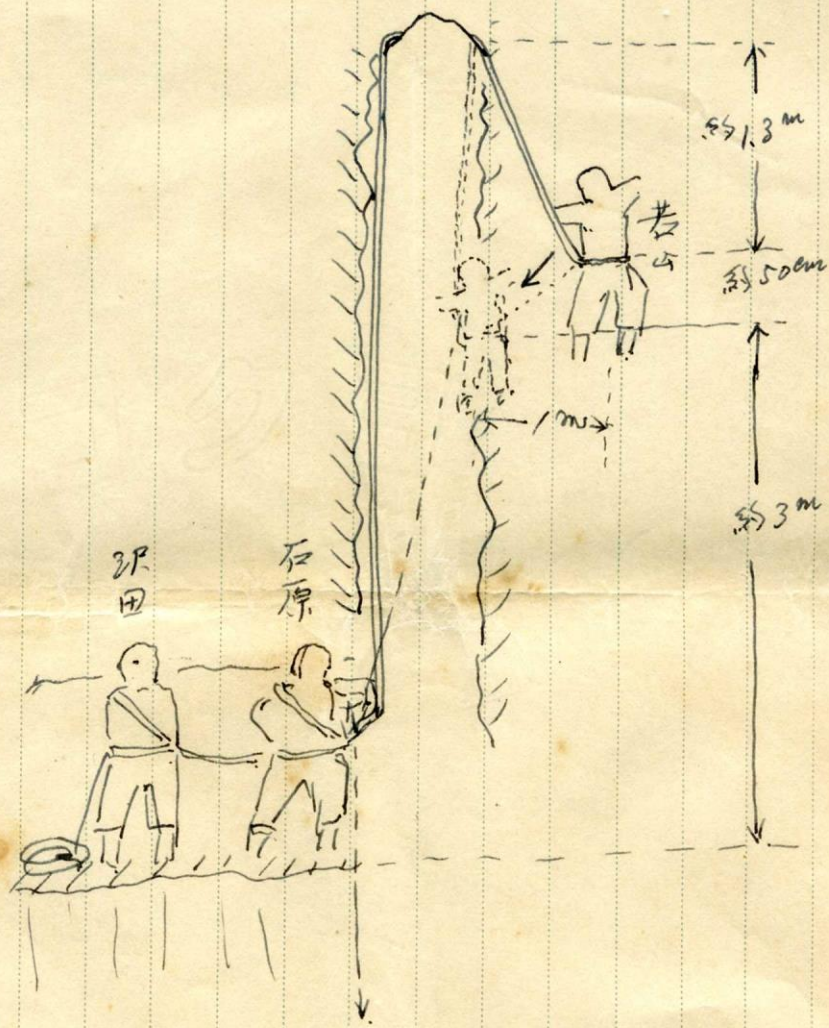 約1.3m
若山
約50cm
1m
約3m
沢田
石原